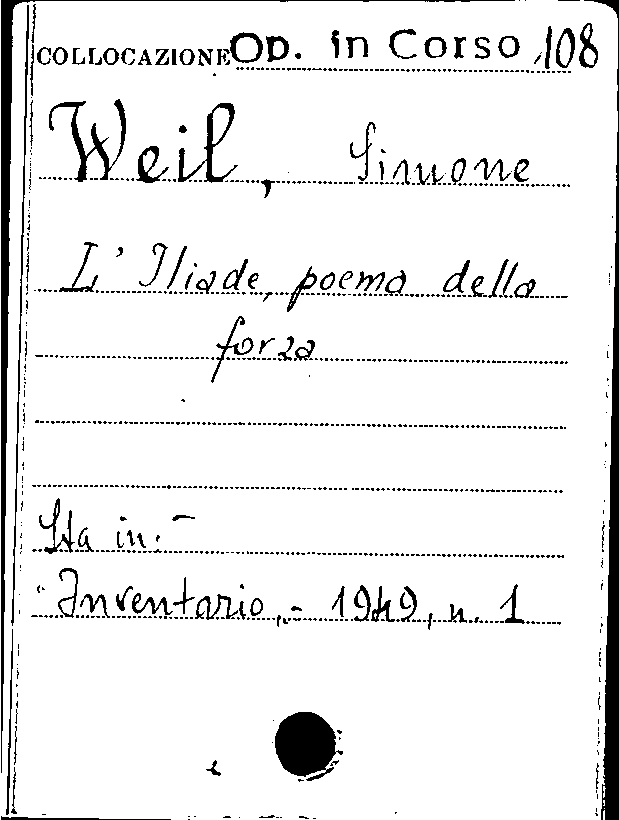 COLLOCAZIONE OD. in Corso 108
Weil, Simone
L' Iliade, poema della
forza
Sta in:-
"Inventario,- 1949, n. 1